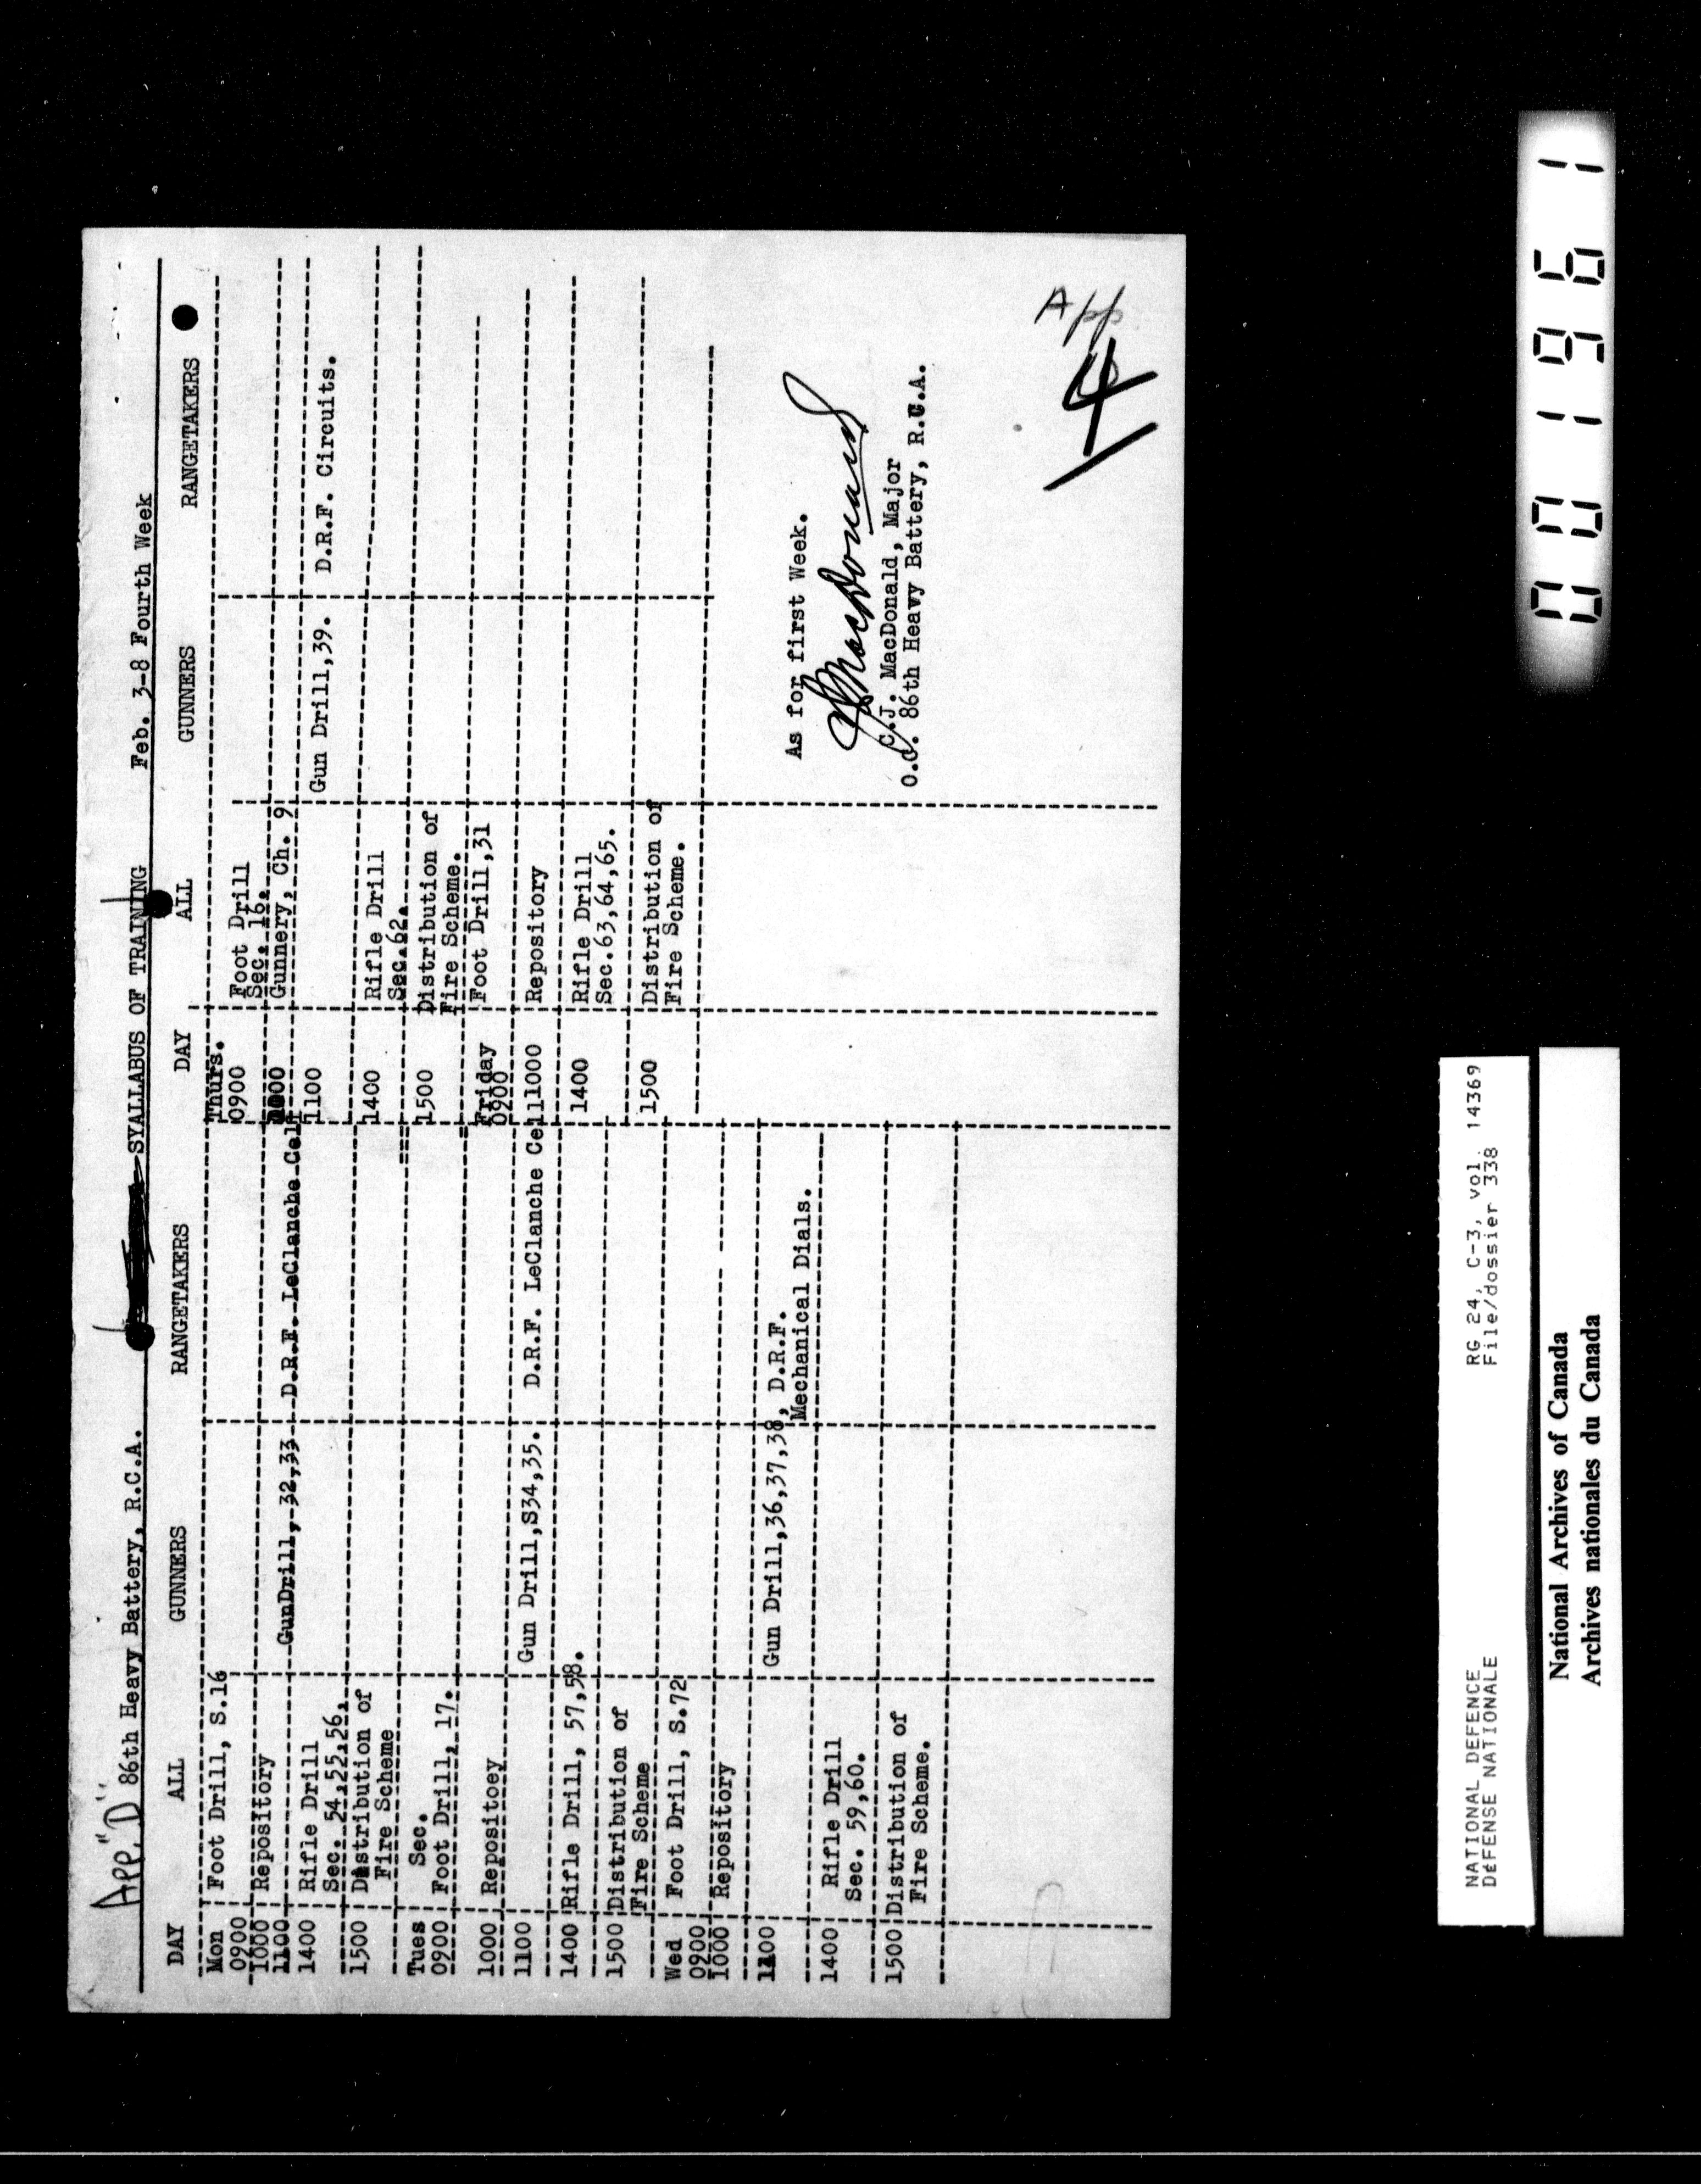 App. "D" 86th Heavy Battery, R.C.A. SYALLABUS OF TRAINING Feb. 3-8 Fourth Week
DAY ALL GUNNERS RANGETAKERS DAY ALL GUNNERS RANGETAKERS
Mon
0900 Foot Drill, S.16
1000 Repository
1100 GunDrill, 32,33 D.R.F. LeClanche Cell
1400 Rifle Drill
Sec. 54,55,56,
1500 Distribution of
Fire Scheme
Tues Sec.
0900 Foot Drill, 17.
1000 Repositoey
1100 Gun Drill,S34,35. D.R.F. LeClanche Cell
1400 Rifle Drill, 57,58.
1500 Distribution of
Fire Scheme
Wed Foot Drill, S.72
0900
1000 Repository
1100 Gun Drill,36,37,38, D.R.F.
Mechanical Dials.
1400 Rifle Drill
Sec. 59,60.
1500 Distribution of
Fire Scheme.
Thurs.
0900 Foot Drill
Sec. 16.
1000 Gunnery, Ch. 9
1100 Gun Drill,39. D.R.F. Circuits.
1400 Rifle Drill
Sec.62.
1500 Distribution of
Fire Scheme.
Friday
0900 Foot Drill,31
1000 Repository
1400 Rifle Drill
Sec.63,64,65.
1500 Distribution of
Fire Scheme.
As for first Week.
CJMacDonald
C.J. MacDonald, Major
O.C. 86th Heavy Battery, R.C.A.
App
4
NATIONAL DEFENCE RG 24, C-3, vol. 14369
DÉFENSE NATIONALE File/dossier 338
National Archives of Canada
Archives nationales du Canada
001961